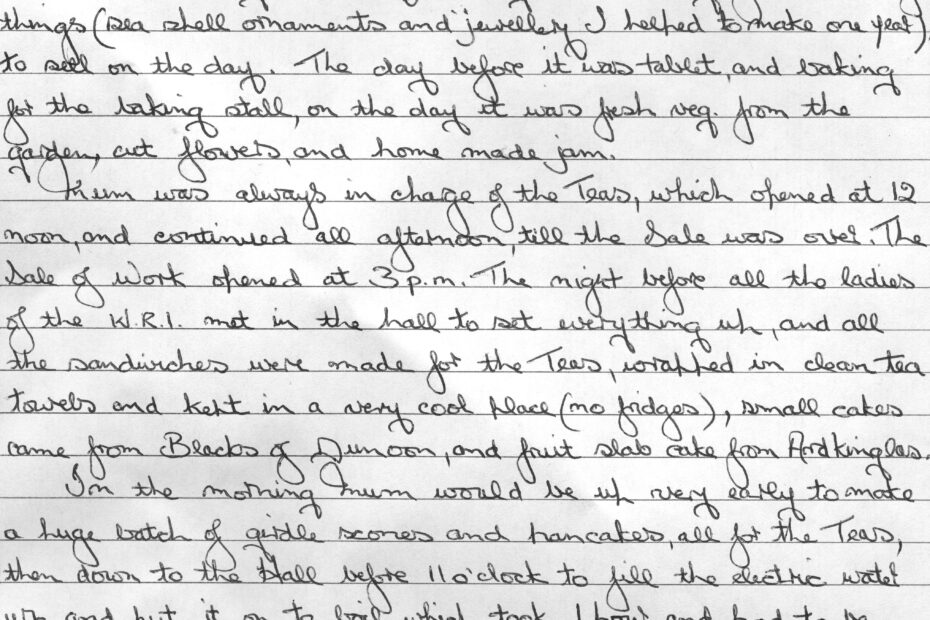 things (sea shell ornaments and jewellery I helped to make one year)
to sell on the day. The day before it was tablet, and baking
for the baking stall, on the day it was fresh veg. from the
garden, cut flowers, and home made jam.
Mum was always in charge of the Teas, which opened at 12
noon, and continued all afternoon, till the Sale was over. The
Sale of Work opened at 3 p.m. The night before all the ladies
of the W.R.I. met in the hall to set everything up, and all
the sandwiches were made for the Teas, wrapped in clean tea
towels and kept in a very cool place (no fridges), small cakes
came from Blacks of Dunoon, and fruit slab cake from Ardkinglas.
In the morning Mum would be up very early to make
a huge batch of girdle scones and pancakes, all for the Teas,
then down to the Hall before 11 o'clock to fill the electric water
urn and put it on to boil which took 1 hour and had to be